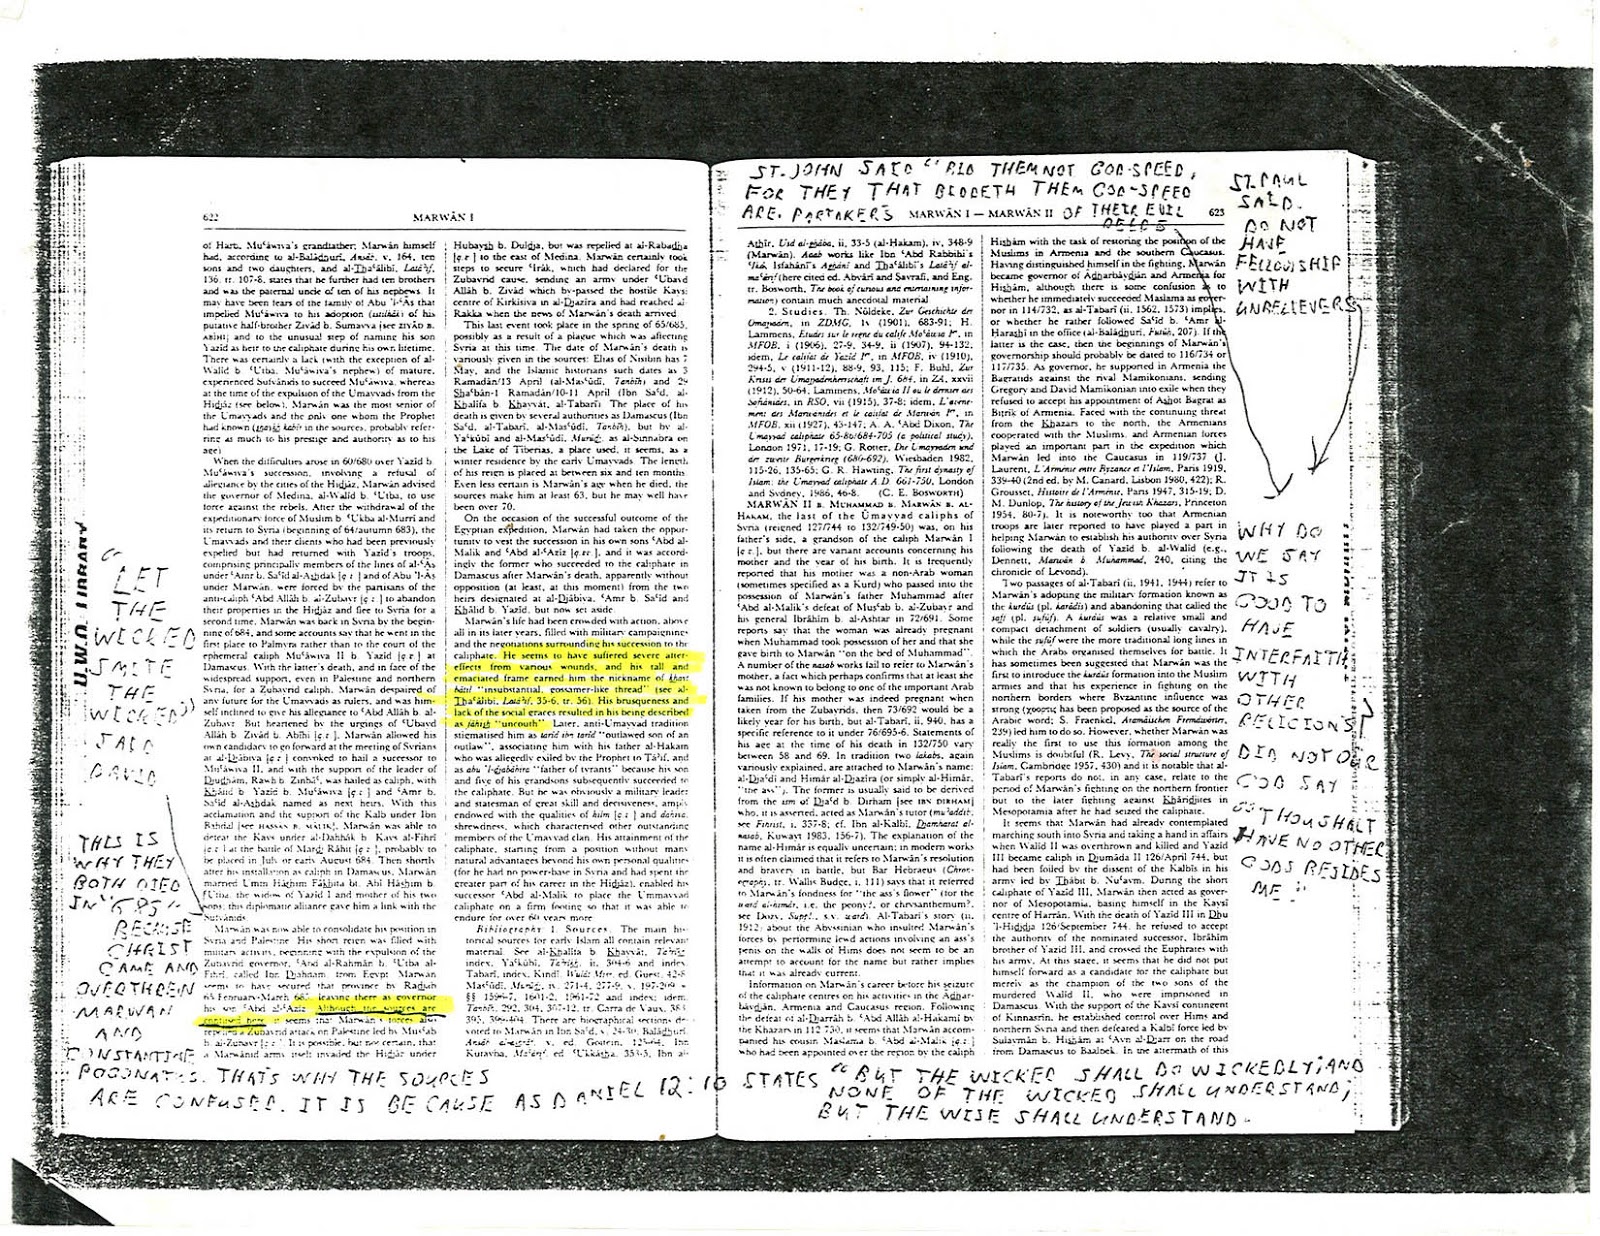 622
MARWĀN I
of Harb, Muʿāwiya's grandfather; Marwān himself
had, according to al-Balādhurī, Ansāb, v, 164, ten
sons and two daughters, and al-Thaʿālibī, Latāʾif,
136, tr. 107-8, states that he further had ten brothers
and was the paternal uncle of ten of his nephews. It
may have been fears of the family of Abu 'l-ʿĀs that
impelled Muʿāwiya to his adoption (istilhāk) of his
putative half-brother Ziyād b. Sumayya [see ZIYĀD B.
ABĪHI] and to the unusual step of naming his son
Yazīd as heir to the caliphate during his own lifetime.
There was certainly a lack (with the exception of al-
Walīd b. ʿUtba, Muʿāwiya's nephew) of mature,
experienced Sufyānids to succeed Muʿāwiya, whereas
at the time of the expulsion of the Umayyads from the
Hidjāz (see below), Marwān was the most senior of
the Umayyads and the only one whom the Prophet
had known (shaykh kabīr in the sources, probably refer-
ring as much to his prestige and authority as to his
age)
When the difficulties arose in 60/680 over Yazīd b.
Muʿāwiya's succession, involving a refusal of
allegiance by the cities of the Hidjāz, Marwān advised
the governor of Medina, al-Walīd b. ʿUtba, to use
force against the rebels. After the withdrawal of the
expeditionary force of Muslim b. ʿUkba al-Murrī and
its return to Syria (beginning of 64/autumn 683), the
Umayyads and their clients who had been previously
expelled but had returned with Yazīd's troops,
comprising principally members of the lines of al-ʿĀs
under ʿAmr b. Saʿīd al-Ashdak [q.v.] and of Abu 'l-ʿĀs
under Marwān, were forced by the partisans of the
anti-caliph ʿAbd Allāh b. al-Zubayr [q.v.] to abandon
their properties in the Hidjāz and flee to Syria for a
second time. Marwān was back in Syria by the begin-
ning of 684, and some accounts say that he went in the
first place to Palmyra rather than to the court of the
ephemeral caliph Muʿāwiya II b. Yazīd [q.v.] at
Damascus. With the latter's death, and in face of the
widespread support, even in Palestine and northern
Syria, for a Zubayrid caliph, Marwān despaired of
any future for the Umayyads as rulers, and was him-
self inclined to give his allegiance to ʿAbd Allāh b. al-
Zubayr. But heartened by the urgings of ʿUbayd
Allāh b. Ziyād b. Abīhi [q.v.], Marwān allowed his
own candidacy to go forward at the meeting of Syrians
at Djābiya [q.v.] convoked to hail a successor to
Muʿāwiya II, and with the support of the leader of
Djudhām, Rawh b. Zinbāʿ, was hailed as caliph, with
Khālid b. Yazīd b. Muʿāwiya [q.v.] and ʿAmr b.
Saʿīd al-Ashdak named as next heirs. With this
acclamation and the support of the Kalb under Ibn
Bahdal [see HASSĀN B. MĀLIK], Marwān was able to
defeat the Kays under al-Dahhāk b. Kays al-Fihrī
[q.v.] at the battle of Mardj Rāhit [q.v.], probably to
be placed in July or early August 684. Then shortly
after his installation as caliph in Damascus, Marwān
married Umm Hāshim Fākhita bt. Abī Hāshim b.
ʿUtba, the widow of Yazīd I and mother of his two
sons; this diplomatic alliance gave him a link with the
Sufyānids.
Marwān was now able to consolidate his position in
Syria and Palestine. His short reign was filled with
military activity, beginning with the expulsion of the
Zubayrid governor, ʿAbd al-Rahmān b. ʿUtba al-
Fihrī, called Ibn Djahdam, from Egypt. Marwān
seems to have secured that province by Radjab
65/February-March 685, leaving there as governor
his son ʿAbd al-ʿAzīz. Although the sources are
confused here, it seems that Marwān's forces also
repelled a Zubayrid attack on Palestine led by Musʿab
b. al-Zubayr [q.v.]. It is possible, but not certain, that
a Marwānid army itself invaded the Hidjāz under
Hubaysh b. Duldja, but was repelled at al-Rabadha
[q.v.] to the east of Medina. Marwān certainly took
steps to secure ʿIrāk, which had declared for the
Zubayrid cause, sending an army under ʿUbayd
Allāh b. Ziyād which by-passed the hostile Kays
centre of Kirkīsiyā in al-Djazīra and had reached al-
Rakka when the news of Marwān's death arrived.
This last event took place in the spring of 65/685,
possibly as a result of a plague which was affecting
Syria at this time. The date of Marwān's death is
variously given in the sources: Elias of Nisibin has 7
May, and the Islamic historians such dates as 3
Ramadān/13 April (al-Masʿūdī, Tanbīh) and 29
Shaʿbān-1 Ramadān/10-11 April (Ibn Saʿd, al-
Khalīfa b. Khayyāt, al-Tabarī). The place of his
death is given by several authorities as Damascus (Ibn
Saʿd, al-Tabarī, al-Masʿūdī, Tanbīh), but by al-
Yaʿkūbī and al-Masʿūdī, Murūdj, as al-Sinnabra on
the Lake of Tiberias, a place used, it seems, as a
winter residence by the early Umayyads. The length
of his reign is placed at between six and ten months.
Even less certain is Marwān's age when he died, the
sources make him at least 63, but he may well have
been over 70.
On the occasion of the successful outcome of the
Egyptian expedition, Marwān had taken the oppor-
tunity to vest the succession in his own sons ʿAbd al-
Malik and ʿAbd al-ʿAzīz [q.vv.], and it was accord-
ingly the former who succeeded to the caliphate in
Damascus after Marwān's death, apparently without
opposition (at least, at this moment) from the two
heirs designated at al-Djābiya, ʿAmr b. Saʿīd and
Khālid b. Yazīd, but now set aside.
Marwān's life had been crowded with action, above
all in its later years, filled with military campaigning
and the negotiations surrounding his succession to the
caliphate. He seems to have suffered severe after-
effects from various wounds, and his tall and
emaciated frame earned him the nickname of khayt
bātil "insubstantial, gossamer-like thread" (see al-
Thaʿālibī, Latāʾif, 35-6, tr. 56). His brusqueness and
lack of the social graces resulted in his being described
as fāhish "uncouth". Later, anti-Umayyad tradition
stigmatised him as tarīd ibn tarīd "outlawed son of an
outlaw", associating him with his father al-Hakam
who was allegedly exiled by the Prophet to Tāʾif, and
as abu 'l-djabābira "father of tyrants" because his son
and five of his grandsons subsequently succeeded to
the caliphate. But he was obviously a military leader
and statesman of great skill and decisiveness, amply
endowed with the qualities of hilm [q.v.] and dahiya,
shrewdness, which characterised other outstanding
members of the Umayyad clan. His attainment of the
caliphate, starting from a position without many
natural advantages beyond his own personal qualities
(for he had no power-base in Syria and had spent the
greater part of his career in the Hidjāz), enabled his
successor ʿAbd al-Malik to place the Ummayad
caliphate on a firm footing so that it was able to
endure for over 60 years more.
Bibliography: 1. Sources. The main his-
torical sources for early Islam all contain relevant
material. See al-Khalīfa b. Khayyāt, Taʾrīkh,
index; Yaʿkūbī, Taʾrīkh, ii, 304-6 and index;
Tabarī, index; Kindī, Wulāt Misr, ed. Guest, 42-8;
Masʿūdī, Murūdj, iv, 271-4, 277-9, v, 197-209 =
§§ 1596-7, 1601-2, 1961-72 and index; idem,
Tanbīh, 292, 304, 307-12, tr. Carra de Vaux, 383,
395, 399-404. There are biographical sections de-
voted to Marwān in Ibn Saʿd, v, 24-30, Balādhurī,
Ansāb al-ashrāf, v, ed. Goitein, 125-64, Ibn
Kutayba, Maʿārif, ed. ʿUkkāsha, 353-5, Ibn al-
"LET
THE
WICKED
SMITE
THE
WICKED"
SAID
DAVID
THIS IS
WHY THEY
BOTH DIED
IN "685"
BECAUSE
CHRIST
CAME AND
OVERTHREW
MARWAN
AND
CONSTANTINE
POGONATUS. THAT'S WHY THE SOURCES
ARE CONFUSED. IT IS BECAUSE AS DANIEL 12:10 STATES "BUT THE WICKED SHALL DO WICKEDLY; AND
NONE OF THE WICKED SHALL UNDERSTAND;
BUT THE WISE SHALL UNDERSTAND.
ST. JOHN SAID "BID THEM NOT GOD-SPEED,
FOR THEY THAT BIDDETH THEM GOD-SPEED
ARE PARTAKERS OF THEIR EVIL
DEEDS
MARWĀN I — MARWĀN II
623
Athīr, Usd al-ghāba, ii, 33-5 (al-Hakam), iv, 348-9
(Marwān). Adab works like Ibn ʿAbd Rabbihi's
ʿIkd, Isfahānī's Aghānī and Thaʿālibī's Latāʾif al-
maʿārif (here cited ed. Abyārī and Sayrafī, and Eng.
tr. Bosworth, The book of curious and entertaining infor-
mation) contain much anecdotal material.
2. Studies. Th. Nöldeke, Zur Geschichte der
Omaijaden, in ZDMG, lv (1901), 683-91; H.
Lammens, Études sur le règne du calife Moʿâwia Iᵉʳ, in
MFOB, i (1906), 27-9, 34-9, ii (1907), 94-132;
idem, Le califat de Yazîd Iᵉʳ, in MFOB, iv (1910),
294-5, v (1911-12), 88-9, 93, 115; F. Buhl, Zur
Krisis der Umajjadenherrschaft im J. 684, in ZA, xxvii
(1912), 50-64; Lammens, Moʿâwia II ou le dernier des
Sofiânides, in RSO, vii (1915), 37-8; idem, L'avène-
ment des Marwanides et le califat de Marwân Iᵉʳ, in
MFOB, xii (1927), 43-147; A. A. ʿAbd Dixon, The
Umayyad caliphate 65-86/684-705 (a political study),
London 1971, 17-19; G. Rotter, Die Umayyaden und
der zweite Bürgerkrieg (680-692), Wiesbaden 1982,
115-26, 135-65; G. R. Hawting, The first dynasty of
Islam: the Umayyad caliphate A.D. 661-750, London
and Sydney, 1986, 46-8. (C. E. BOSWORTH)
MARWĀN II B. MUHAMMAD B. MARWĀN B. AL-
HAKAM, the last of the Umayyad caliphs of
Syria (reigned 127/744 to 132/749-50) was, on his
father's side, a grandson of the caliph Marwān I
[q.v.], but there are variant accounts concerning his
mother and the year of his birth. It is frequently
reported that his mother was a non-Arab woman
(sometimes specified as a Kurd) who passed into the
possession of Marwān's father Muhammad after
ʿAbd al-Malik's defeat of Musʿab b. al-Zubayr and
his general Ibrāhīm b. al-Ashtar in 72/691. Some
reports say that the woman was already pregnant
when Muhammad took possession of her and that she
gave birth to Marwān "on the bed of Muhammad".
A number of the nasab works fail to refer to Marwān's
mother, a fact which perhaps confirms that at least she
was not known to belong to one of the important Arab
families. If his mother was indeed pregnant when
taken from the Zubayrids, then 73/692 would be a
likely year for his birth, but al-Tabarī, ii, 940, has a
specific reference to it under 76/695-6. Statements of
his age at the time of his death in 132/750 vary
between 58 and 69. In tradition two lakabs, again
variously explained, are attached to Marwān's name:
al-Djaʿdī and Himār al-Djazīra (or simply al-Himār,
"the ass"). The former is usually said to be derived
from the ism of Djaʿd b. Dirham [see IBN DIRHAM]
who, it is asserted, acted as Marwān's tutor (muʾaddib;
see Fihrist, i, 357-8; cf. Ibn al-Kalbī, Djamharat al-
nasab, Kuwayt 1983, 156-7). The explanation of the
name al-Himār is equally uncertain; in modern works
it is often claimed that it refers to Marwān's resolution
and bravery in battle, but Bar Hebraeus (Chron-
ography, tr. Wallis Budge, i, 111) says that it referred
to Marwān's fondness for "the ass's flower" (for the
ward al-himār, i.e. the peony?, or chrysanthemum?,
see Dozy, Suppl., s.v. ward). Al-Tabarī's story (ii,
1912) about the Abyssinian who insulted Marwān's
forces by performing lewd actions involving an ass's
penis on the walls of Hims does not seem to be an
attempt to account for the name but rather implies
that it was already current.
Information on Marwān's career before his seizure
of the caliphate centres on his activities in the Ādhar-
baydjān, Armenia and Caucasus region. Following
the defeat of al-Djarrāh b. ʿAbd Allāh al-Hakamī by
the Khazars in 112/730, it seems that Marwān accom-
panied his cousin Maslama b. ʿAbd al-Malik [q.v.]
who had been appointed over the region by the caliph
Hishām with the task of restoring the position of the
Muslims in Armenia and the southern Caucasus.
Having distinguished himself in the fighting, Marwān
became governor of Ādharbaydjān and Armenia for
Hishām, although there is some confusion as to
whether he immediately succeeded Maslama as gover-
nor in 114/732, as al-Tabarī (ii, 1562, 1573) implies,
or whether he rather followed Saʿīd b. ʿAmr al-
Harashī in the office (al-Balādhurī, Futūh, 207). If the
latter is the case, then the beginnings of Marwān's
governorship should probably be dated to 116/734 or
117/735. As governor, he supported in Armenia the
Bagratids against the rival Mamikonians, sending
Gregory and David Mamikonian into exile when they
refused to accept his appointment of Ashot Bagrat as
Bitrīk of Armenia. Faced with the continuing threat
from the Khazars to the north, the Armenians
cooperated with the Muslims, and Armenian forces
played an important part in the expedition which
Marwān led into the Caucasus in 119/737 (J.
Laurent, L'Arménie entre Byzance et l'Islam, Paris 1919,
339-40 (2nd ed. by M. Canard, Lisbon 1980, 422); R.
Grousset, Histoire de l'Arménie, Paris 1947, 315-19; D.
M. Dunlop, The history of the Jewish Khazars, Princeton
1954, 80-7). It is noteworthy too that Armenian
troops are later reported to have played a part in
helping Marwān to establish his authority over Syria
following the death of Yazīd b. al-Walīd (e.g.,
Dennett, Marwān b. Muhammad, 240, citing the
chronicle of Levond).
Two passages of al-Tabarī (ii, 1941, 1944) refer to
Marwān's adopting the military formation known as
the kurdūs (pl. karādīs) and abandoning that called the
saff (pl. sufūf). A kurdūs was a relative small and
compact detachment of soldiers (usually cavalry),
while the sufūf were the more traditional long lines in
which the Arabs organised themselves for battle. It
has sometimes been suggested that Marwān was the
first to introduce the kurdūs formation into the Muslim
armies and that his experience in fighting on the
northern borders where Byzantine influence was
strong (χοορτις has been proposed as the source of the
Arabic word; S. Fraenkel, Aramäischen Fremdwörter,
239) led him to do so. However, whether Marwān was
really the first to use this formation among the
Muslims is doubtful (R. Levy, The social structure of
Islam, Cambridge 1957, 430) and it is notable that al-
Tabarī's reports do not, in any case, relate to the
period of Marwān's fighting on the northern frontier
but to the later fighting against Khāridjites in
Mesopotamia after he had seized the caliphate.
It seems that Marwān had already contemplated
marching south into Syria and taking a hand in affairs
when Walīd II was overthrown and killed and Yazīd
III became caliph in Djumādā II 126/April 744, but
had been foiled by the dissent of the Kalbīs in his
army led by Thābit b. Nuʿaym. During the short
caliphate of Yazīd III, Marwān then acted as gover-
nor of Mesopotamia, basing himself in the Kaysī
centre of Harrān. With the death of Yazīd III in Dhu
'l-Hidjdja 126/September 744, he refused to accept
the authority of the nominated successor, Ibrāhīm
brother of Yazīd III, and crossed the Euphrates with
his army. At this stage, it seems that he did not put
himself forward as a candidate for the caliphate but
merely as the champion of the two sons of the
murdered Walīd II, who were imprisoned in
Damascus. With the support of the Kaysī contingent
of Kinnasrīn, he established control over Hims and
northern Syria and then defeated a Kalbī force led by
Sulaymān b. Hishām at ʿAyn al-Djarr on the road
from Damascus to Baalbek. In the aftermath of this
ST. PAUL
SAID.
DO NOT
HAVE
FELLOWSHIP
WITH
UNBELIEVERS
WHY DO
WE SAY
IT IS
GOOD TO
HAVE
INTERFAITH
WITH
OTHER
RELIGIONS?
DID NOT OUR
GOD SAY
"THOU SHALT
HAVE NO OTHER
GODS BESIDES
ME"